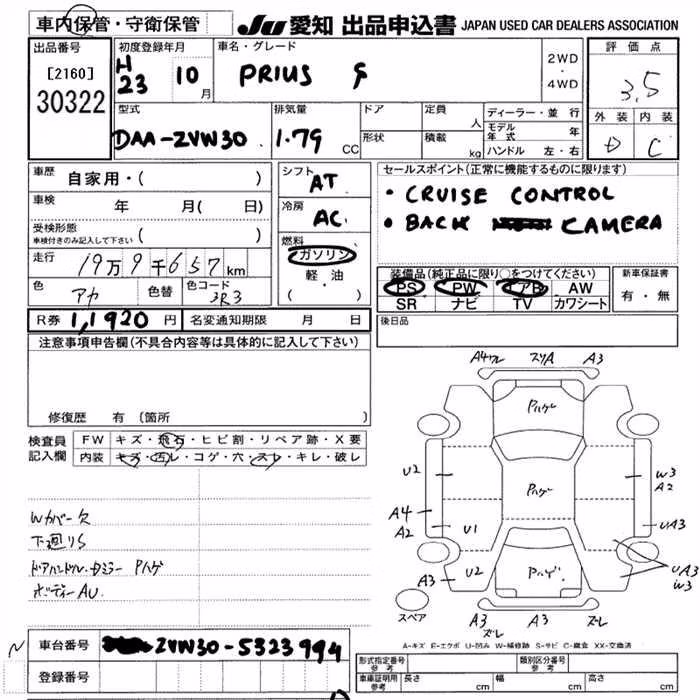 車内保管・守衛保管
JU 愛知 出品申込書 JAPAN USED CAR DEALERS ASSOCIATION
出品番号
[2160]
30322
初度登録年月
H
23 10月
車名・グレード
PRIUS G
2WD
・
4WD
評価点
3.5
外装 内装
D C
型式
DAA-ZVW30
排気量
1.79 CC
ドア
形状
定員 人
積載 kg
ディーラー・並行
モデル年式 年
ハンドル 左・右
車歴 自家用・( )
車検 年 月( 日)
受検形態 ( )
車検付きのみ記入して下さい
走行 19万9千657km
色 アカ 色替 色コード 3R3
シフト
AT
冷房
AC
燃料
ガソリン
軽・油
・( )
セールスポイント(正常に機能するものに限ります)
・CRUISE CONTROL
・BACK CAMERA
装備品(純正品に限り○をつけてください)
PS PW エアB AW
SR ナビ TV カワシート
新車保証書
有・無
後日品
R券 1,1920円 名変通知期限 月 日
注意事項申告欄(不具合内容等は具体的に記入して下さい)
修復歴 有(箇所
検査員記入欄
FW キズ・飛石・ヒビ割・リペア跡・X要
内装 キズ・汚レ・コゲ・穴・スレ・キレ・破レ
Wカバー欠
下廻りS
ドアハンドル・ミラー Pハゲ
ボディーAU
A4 ワレ スリA A3
Pハゲ
U2 Pハゲ W3
A2
A4
A2 U1 UA3
A3 U2 Pハゲ UA3
W3
スペア
A3 A3 ズレ
ズレ
A-キズ E-エクボ U-凹み W-補修跡 S-サビ C-腐食 XX-交換済
N
車台番号 ZVW30-5323994
登録番号
形式指定番号 参考
類別区分番号 参考
車庫証明用 参考
長さ cm 幅 cm 高さ cm